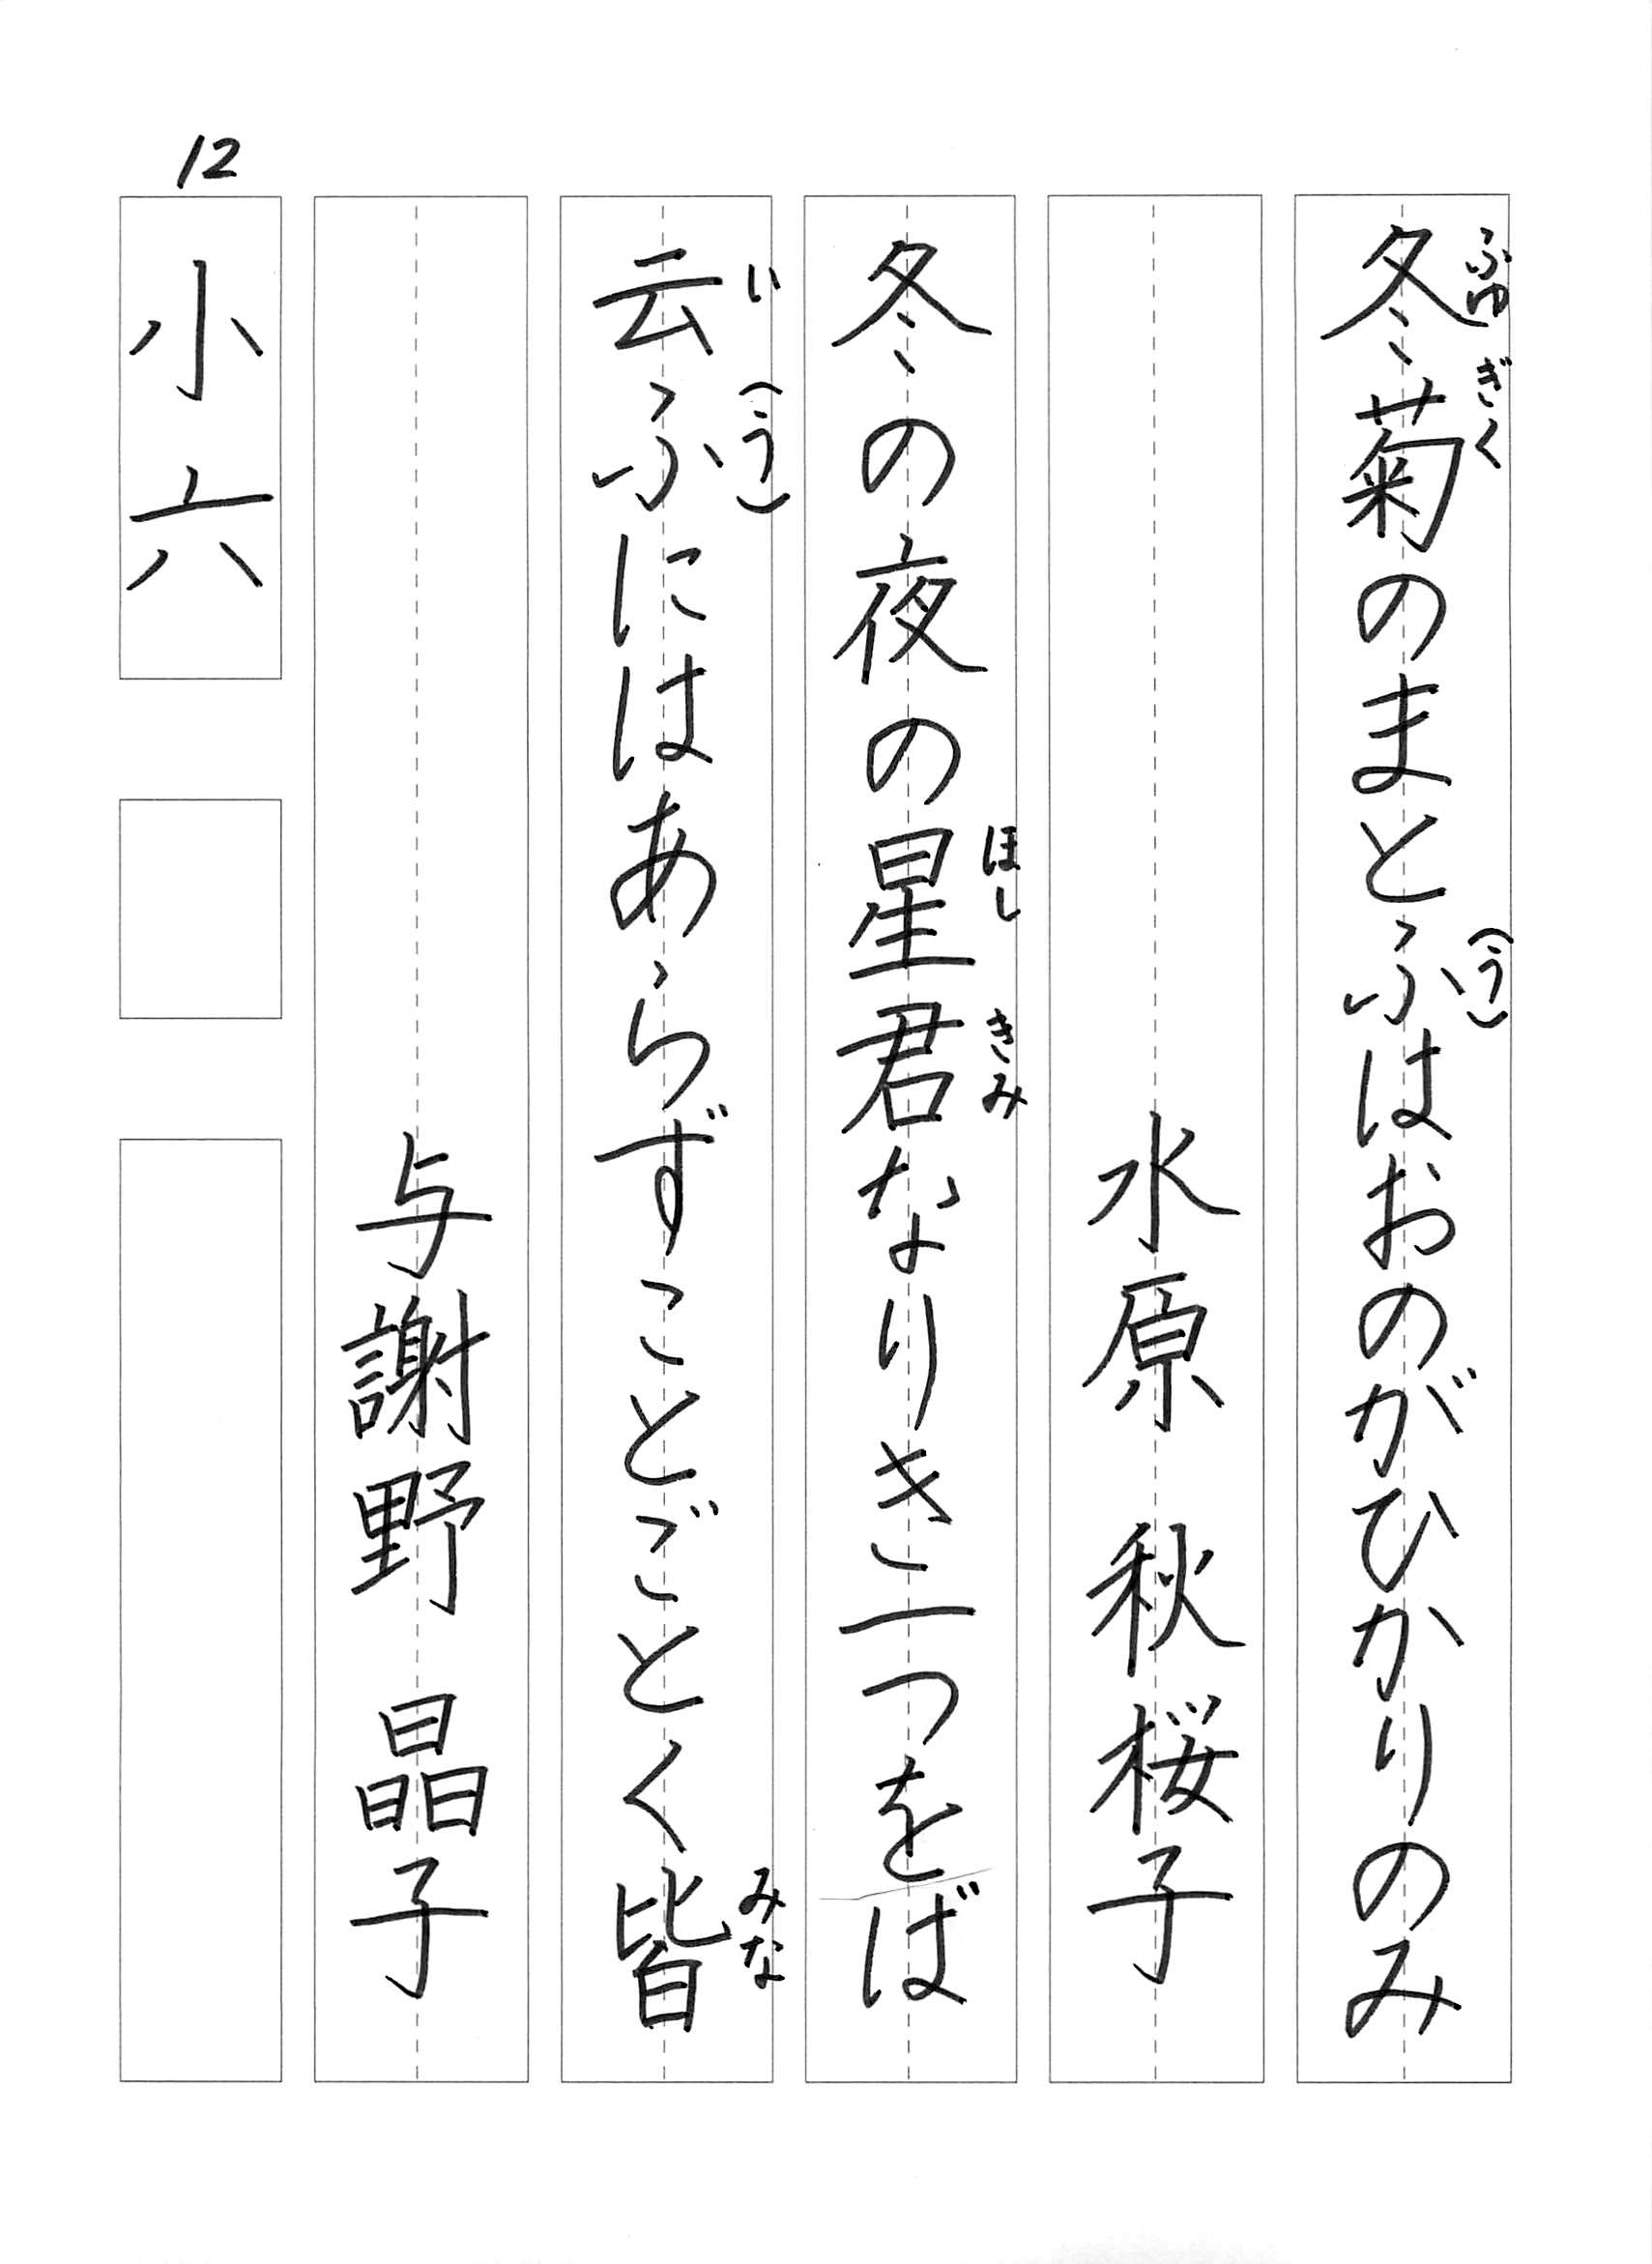 冬菊のまとふはおのがひかりのみ
ふゆ ぎく
(う)
水原 秋桜子
冬の夜の星君なりき一つをば
ほし
きみ
云ふにはあらずことごとく皆
い
(う)
みな
与謝野 晶子
12
小六